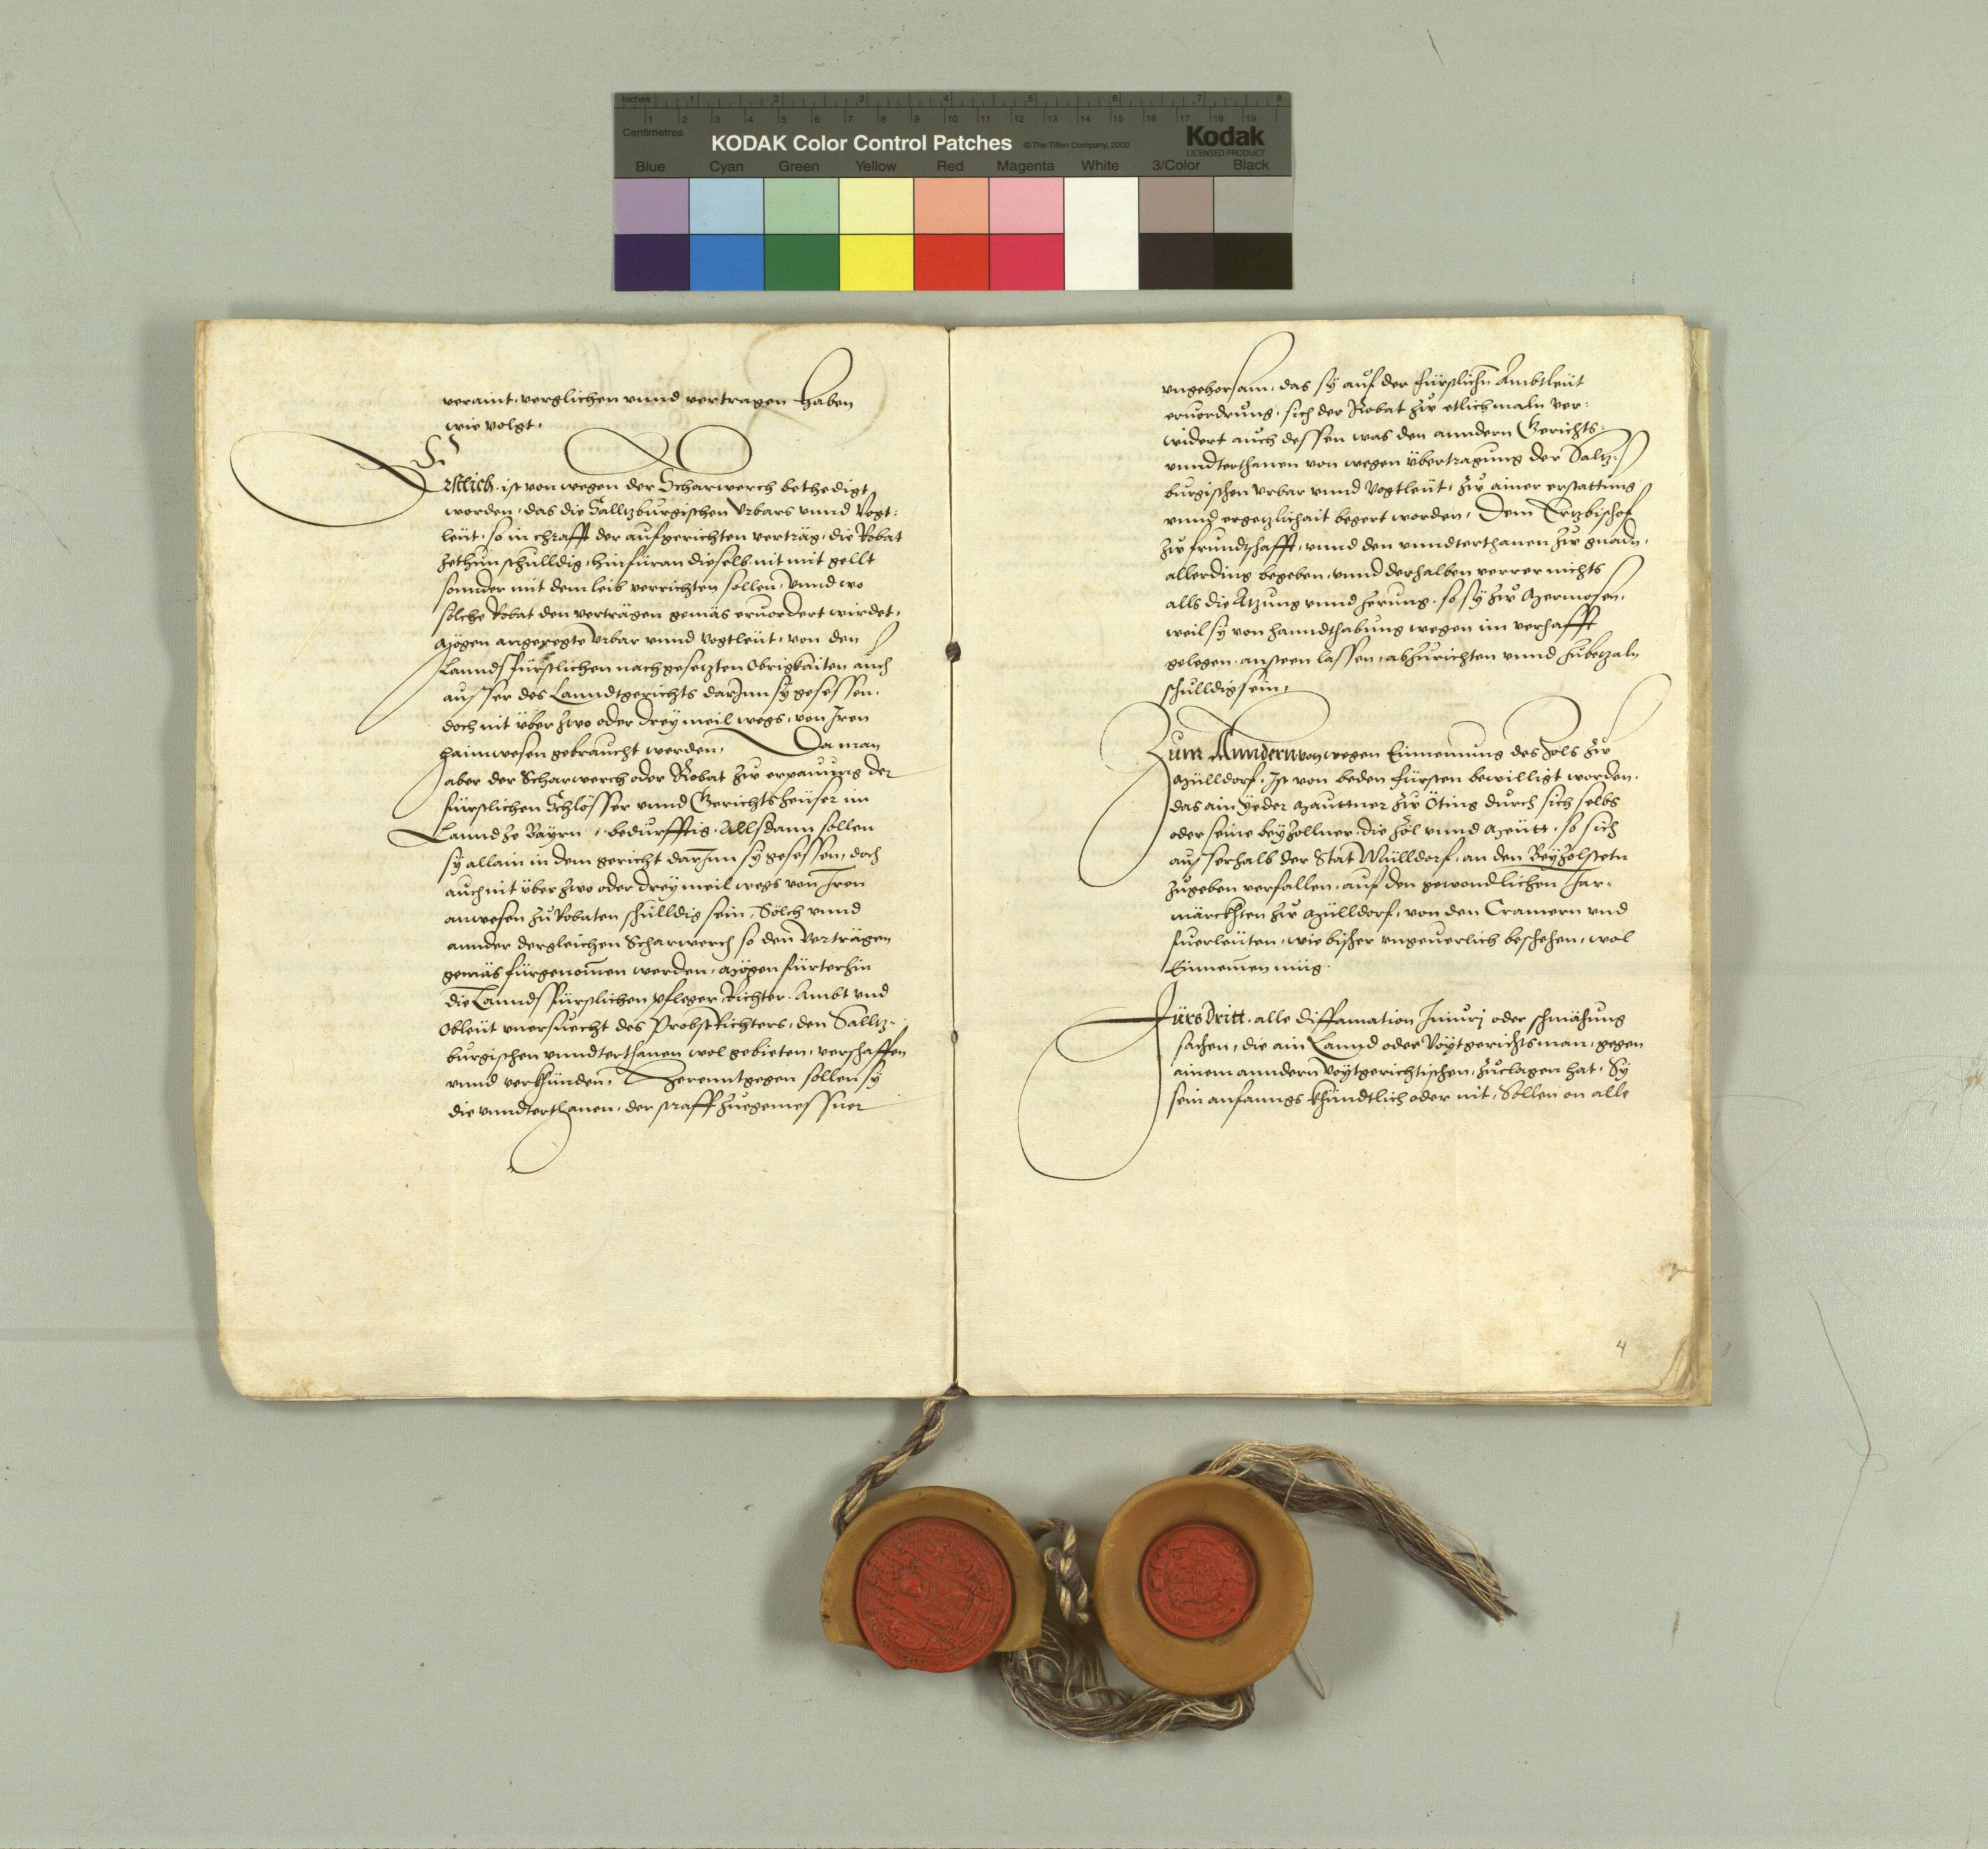 Inches 1 2 3 4 5 6 7 8
Centimetres 1 2 3 4 5 6 7 8 9 10 11 12 13 14 15 16 17 18 19
KODAK Color Control Patches © The Tiffen Company, 2000 Kodak
LICENSED PRODUCT
Blue Cyan Green Yellow Red Magenta White 3/Color Black
veraint, verglichen vnnd vertragen haben
wie volgt.
Erstlich ist von wegen der Scharwerch bethedigt
worden, das die Saltzburgischen Vrbars vnnd Vogt:
leüt, so in chrafft der aufgerichten verträg, die Robat
zethun schulldig, hinfüran dieselb nit mit gellt
sonnder mit dem leib verrichten sollen, Vnnd wo
solche Robat den verträgen gemäs eruordert wirdet,
Mögen angeregte Vrbar vnnd Vogtleüt, von den
Lanndsfürstlichen nachgesetzten Obrigkaiten auch
ausser des Lanndtgerichts darJnn sy gesessen,
doch nit über zwo oder drey meil wegs, von Jren
haimwesen gebraucht werden, Da man
aber der Scharwerch oder Robat zw erpauung der
fürstlichen Schlösser vnnd Gerichtsheüser im
Lannd ze Bayrn, bedurfftig, Allsdann sollen
sy allain in dem gericht darJnn sy gesessen, doch
auch nit über zwo oder drey meil wegs von Jren
anwesen zu Robaten schulldig sein, Sölch vnnd
annder dergleichen Scharwerch so den Verträgen
gemäs fürgenomen werden, Mögen fürterhin
die Lanndsfürstlichen Pfleger Richter, Ambt vnd
Obleüt vnersuecht des Probst Richters, den Salltz-
burgischen vnndterthanen wol gebieten, verschaffen
vnnd verkhünden, Herenntgegen sollen sy
die vnndterthanen, der straff zuegemessner
vngehorsam, das sy auf der fürstlichn Ambtleüt
eruordrung, sich der Robat zw etlichmaln ver:
widert auch dessen was den anndern Gerichts:
vnndterthanen von wegen übertragung der Saltz:
burgischen vrbar vnnd Vogtleüt, zw ainer erstattung
vnnd ergetzlichait begert worden, Dem Ertzbischof
zw frundtschafft, vnnd den vnndterthanen zw gnadn,
allerding begeben, vnnd derhalben verrer nichts
alls die Atzung vnnd zerung, so sy zw Mermosen,
weil sy von hanndthabung wegen im verhafft
gelegen, ansteen lassen, abzurichten vnnd zubetzaln
schulldig sein,
Zum Anndern von wegen Einnemung des Zols zw
Mülldorf, Jst von beden fürsten bewilligt worden,
das ain yeder Mauttner zw Öting durch sich selbs
oder seine beyzollner, die zöl vnnd Meütt, so sich
ausserhalb der Stat Mülldorf, an den Beyzolstetn
zugeben verfallen, auf den gewondlichen Jar-
märckhten zw Mülldorf, von den Cramern vnd
fuerleüten, wie bisher vngeuerlich beschehen, wol
Einnemen müg.
Fürs Dritt, alle diffamation Jniurj oder schmähung
sachen, die ain Lannd oder Voytgerichtsman, gegen
ainem anndern Voytgerichtischen, zuclagen hat, Sy
sein anfanngs khündtlich oder nit, Sollen on alle
4